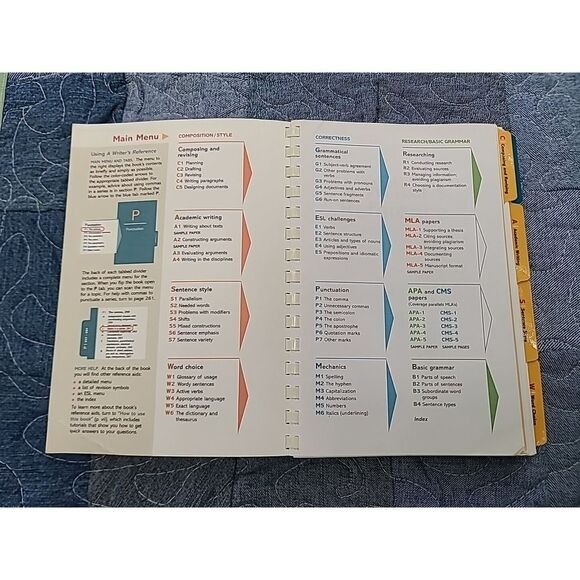 Main Menu
Using A Writer's Reference
MAIN MENU AND TABS. The menu to
the right displays the book's contents
as briefly and simply as possible.
Follow the color-coded arrows to
the appropriate tabbed divider. For
example, advice about using commas
is in section P. Follow the
blue arrow to the blue tab marked P.
P
Punctuation
The back of each tabbed divider
includes a complete menu for the
section. When you flip the book open
to the P tab, you can scan the
menu for a topic. For help with commas to
punctuate a series, turn to page 261.
MORE HELP. At the back of the book
you will find other reference aids:
a detailed menu
a list of revision symbols
an ESL menu
the index
To learn more about the book's
reference aids, turn to "How to use
this book" (p. vii), which includes
tutorials that show you how to get
quick answers to your questions.
COMPOSITION/STYLE
Composing and
revising
C1 Planning
C2 Drafting
C3 Revising
C4 Writing paragraphs
C5 Designing documents
Academic writing
A1 Writing about texts
SAMPLE PAPER
A2 Constructing arguments
SAMPLE PAPER
A3 Evaluating arguments
A4 Writing in the disciplines
Sentence style
S1 Parallelism
S2 Needed words
S3 Problems with modifiers
S4 Shifts
S5 Mixed constructions
S6 Sentence emphasis
S7 Sentence variety
Word choice
W1 Glossary of usage
W2 Wordy sentences
W3 Active verbs
W4 Appropriate language
W5 Exact language
W6 The dictionary and
thesaurus
CORRECTNESS
Grammatical
sentences
G1 Subject-verb agreement
G2 Other problems with
verbs
G3 Problems with pronouns
G4 Adjectives and adverbs
G5 Sentence fragments
G6 Run-on sentences
ESL challenges
E1 Verbs
E2 Sentence structure
E3 Articles and types of nouns
E4 Using adjectives
E5 Prepositions and idiomatic
expressions
Punctuation
P1 The comma
P2 Unnecessary commas
P3 The semicolon
P4 The colon
P5 The apostrophe
P6 Quotation marks
P7 Other marks
Mechanics
M1 Spelling
M2 The hyphen
M3 Capitalization
M4 Abbreviations
M5 Numbers
M6 Italics (underlining)
RESEARCH/BASIC GRAMMAR
Researching
R1 Conducting research
R2 Evaluating sources
R3 Managing information;
avoiding plagiarism
R4 Choosing a documentation
style
MLA papers
MLA-1 Supporting a thesis
MLA-2 Citing sources
avoiding plagiarism
MLA-3 Integrating sources
MLA-4 Documenting
sources
MLA-5 Manuscript format
SAMPLE PAPER
APA and CMS
papers
(Coverage parallels MLA's)
APA-1 CMS-1
APA-2 CMS-2
APA-3 CMS-3
APA-4 CMS-4
APA-5 CMS-5
SAMPLE PAPER SAMPLE PAGES
Basic grammar
B1 Parts of speech
B2 Parts of sentences
B3 Subordinate word
groups
B4 Sentence types
Index
C Composing and Revising
A Academic Writing
S Sentence Style
W Word Choice